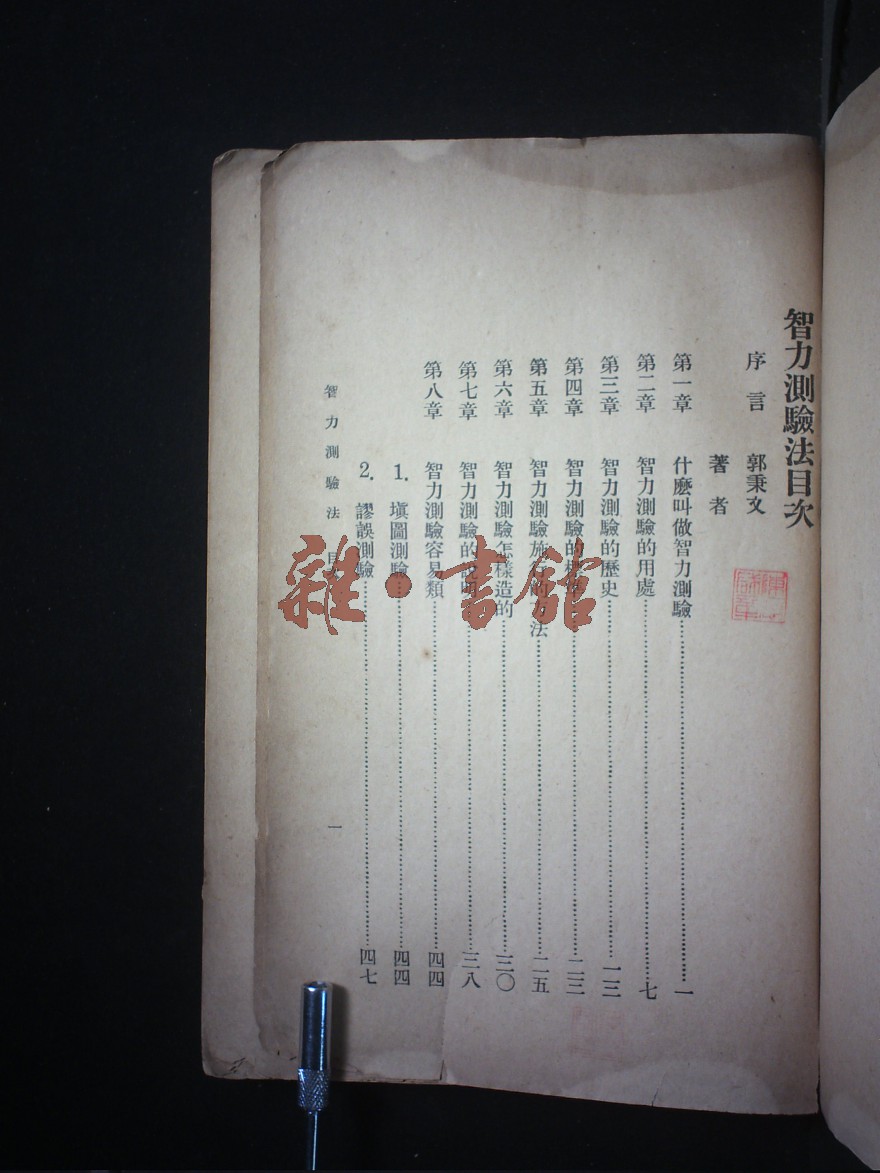 智力測驗法目次
序言 郭秉文
著者
第一章 什麼叫做智力測驗……一
第二章 智力測驗的用處……七
第三章 智力測驗的歷史……一三
第四章 智力測驗的標準……二三
第五章 智力測驗施行的方法……二五
第六章 智力測驗怎樣造的……三〇
第七章 智力測驗的說明……三八
第八章 智力測驗容易類……四四
1. 塡圖測驗……四四
2. 謬誤測驗……四七
智力測驗法 目次 一
雜·書館